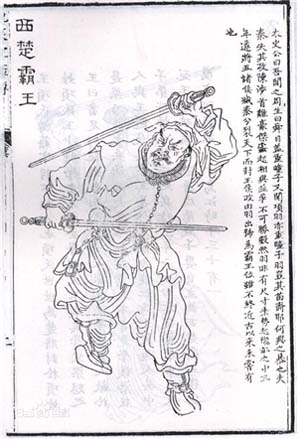 太史公曰吾聞之周生曰舜目蓋重瞳子又聞項羽亦重瞳子羽豈其苗裔耶何興之暴也夫
秦失其政陳涉首難豪傑蠭起相與並爭不可勝數然羽非有尺寸乘勢起隴畝之中三
年遂將五諸侯滅秦分裂天下而封王侯政由羽出號為霸王位雖不終近古以來未嘗有
也
西楚霸王